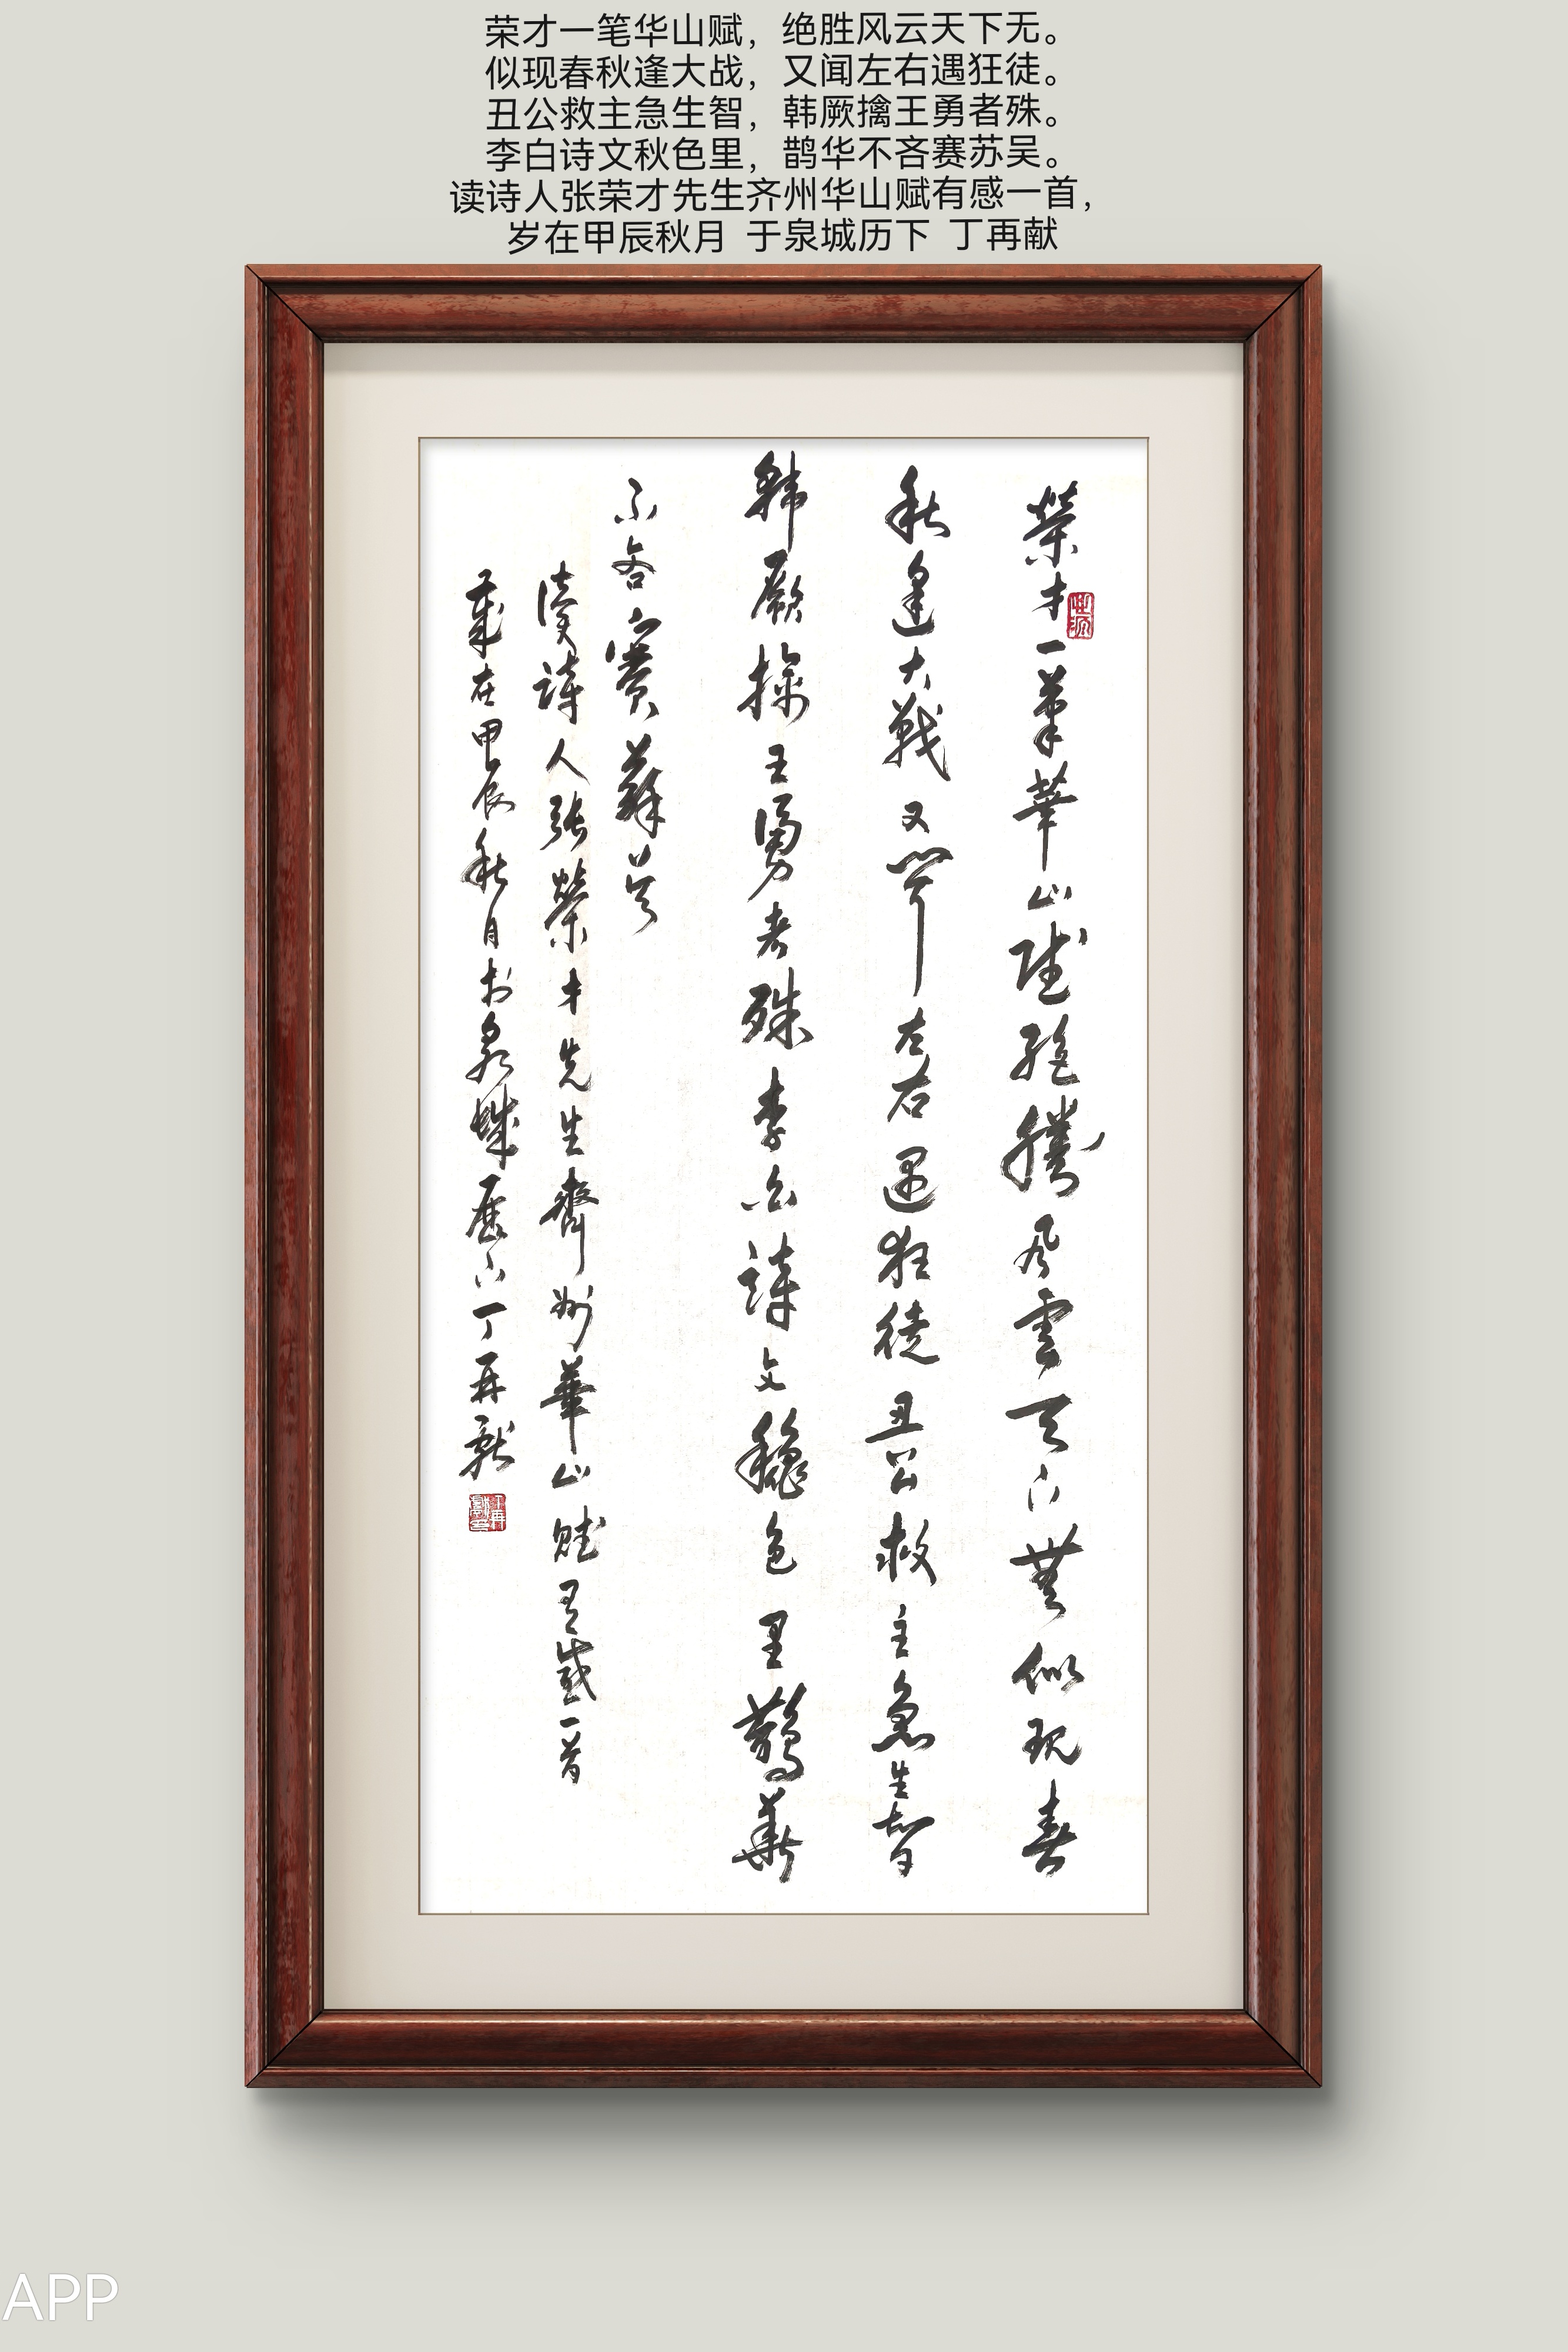 荣才一笔华山赋，绝胜风云天下无。
似现春秋逢大战，又闻左右遇狂徒。
丑公救主急生智，韩厥擒王勇者殊。
李白诗文秋色里，鹊华不吝赛苏吴。
读诗人张荣才先生齐州华山赋有感一首，
岁在甲辰秋月 于泉城历下 丁再献
榮才一筆華山賦絕勝風雲天下無似現春
秋逢大戰又聞左右遇狂徒丑公救主急生智
韩厥擒王勇者殊李白詩文穐色里鵲華
不吝賽蘇吴
讀詩人張榮才先生齊州華山賦有感一首
歲在甲辰秋月于泉城歷下丁再獻
APP